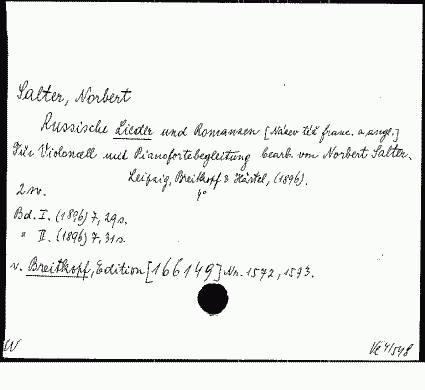 Salter, Norbert
Russische Lieder und Romanzen [Název též franc. a angl.]
Für Violoncell mit Pianofortebegleitung bearb. von Norbert Salter.
Leipzig, Breitkopf & Härtel, (1896).
2 sv. 4°
Bd. I. (1896) 7, 29 s.
" II. (1896) 7, 31 s.
v. Breitkopf, Edition [166149] Nr. 1572, 1573.